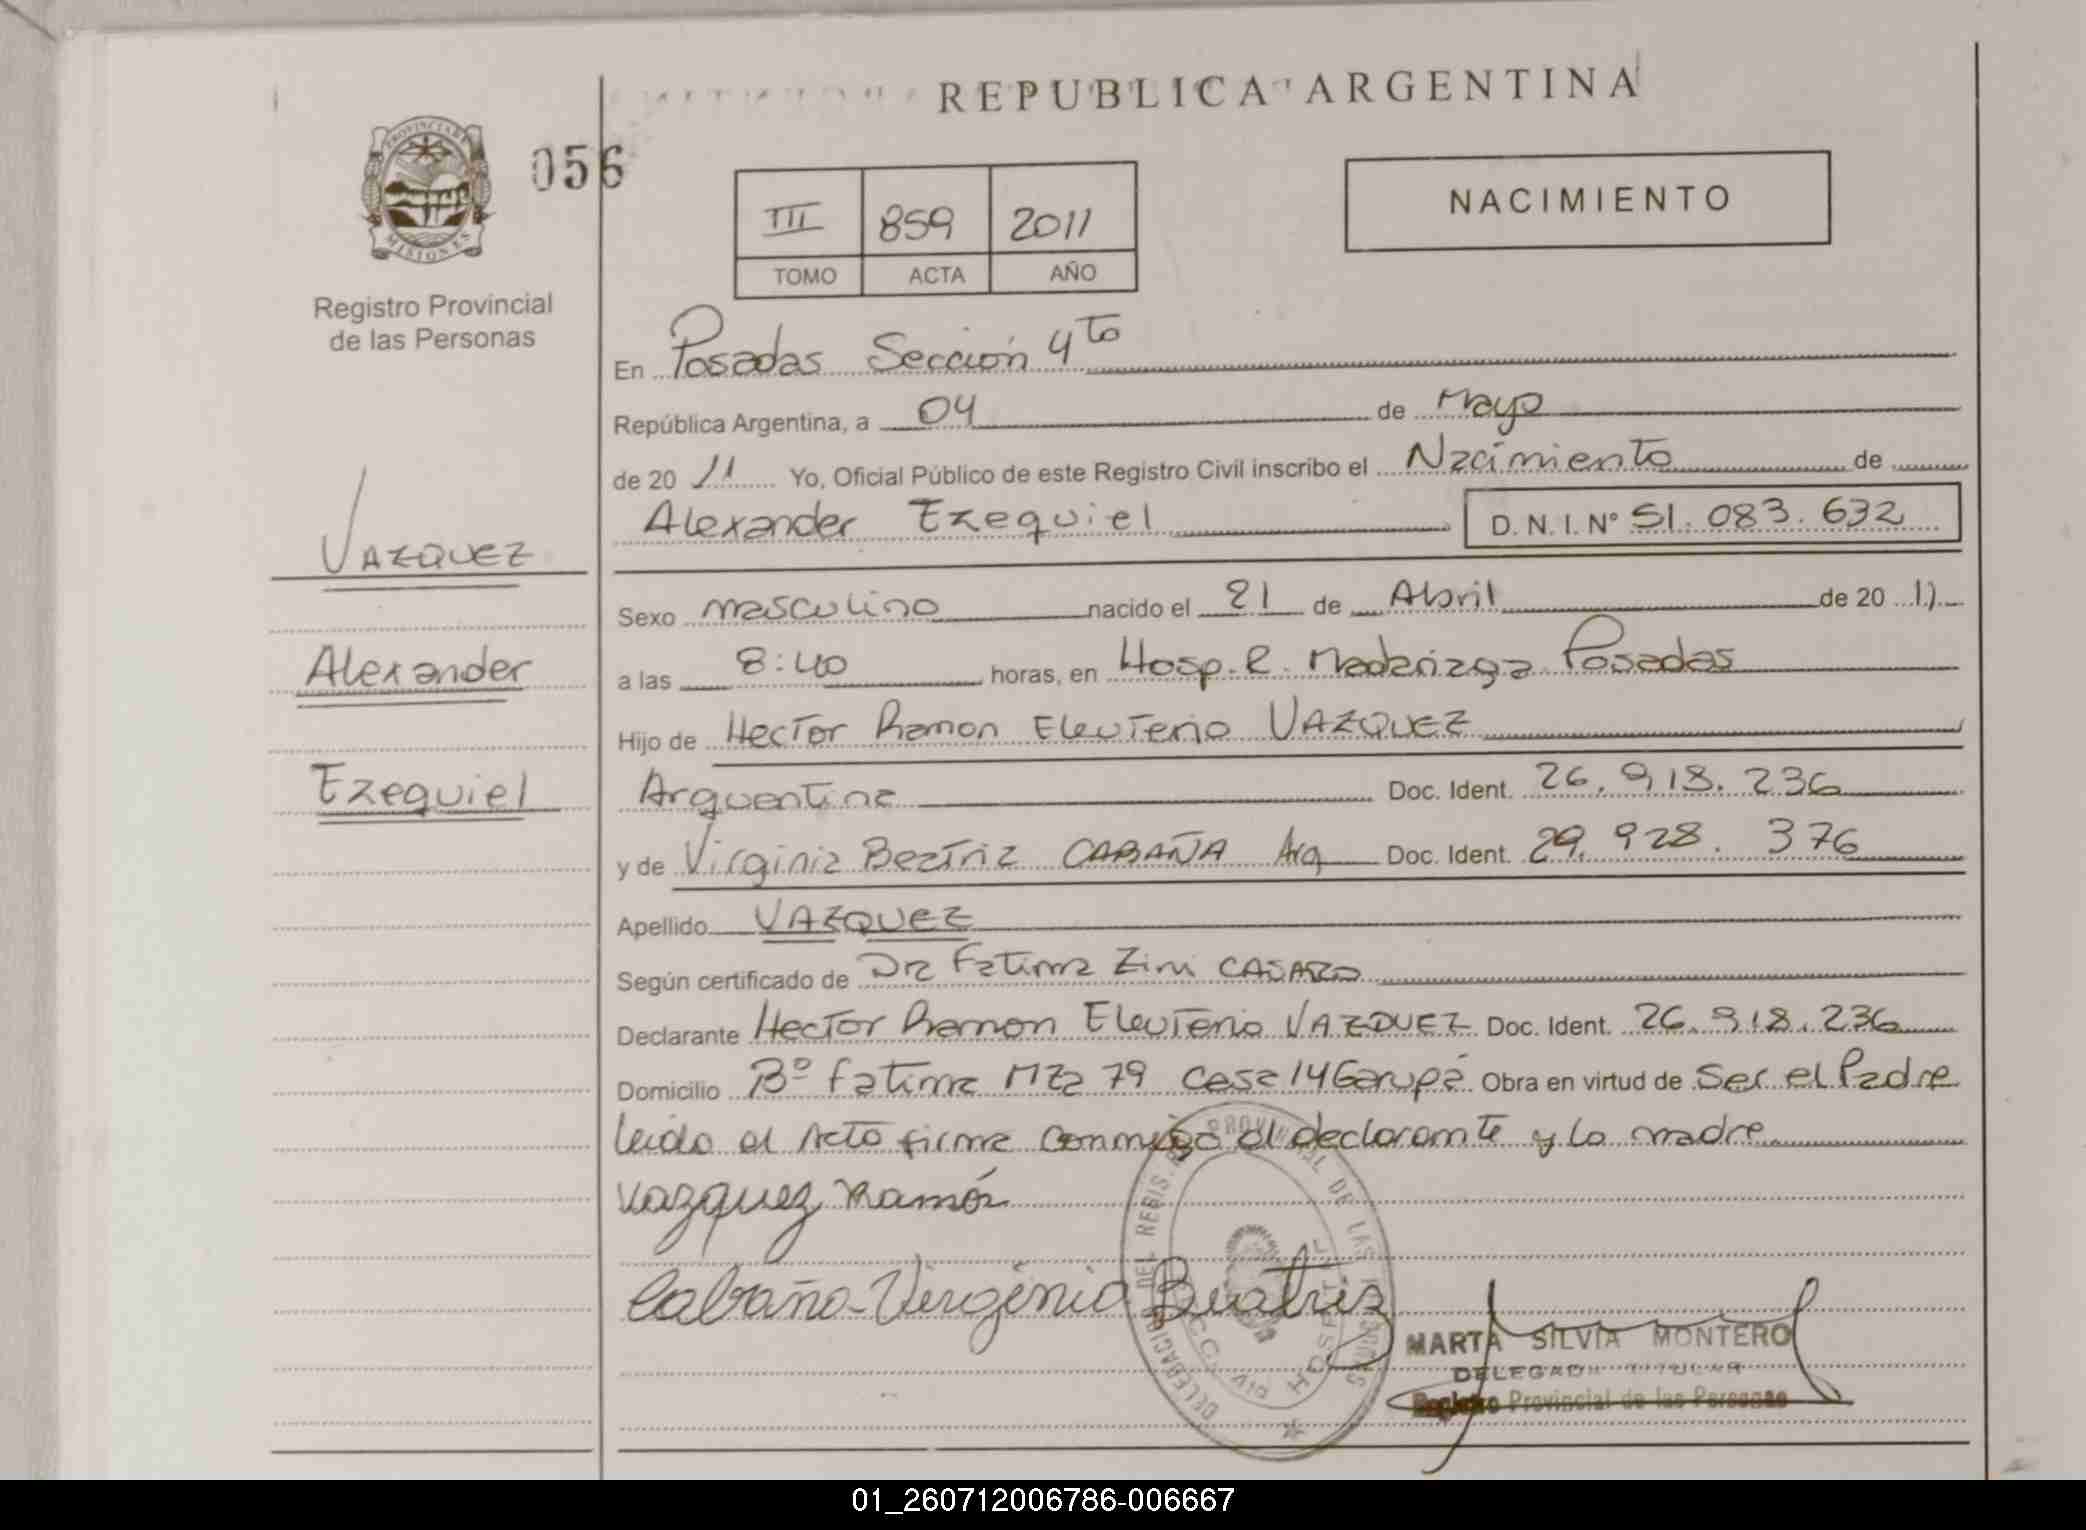 REPUBLICA ARGENTINA
PROVINCIA DE
MISIONES
056
Registro Provincial
de las Personas
III 859 2011
TOMO ACTA AÑO
NACIMIENTO
En Posadas Sección 4to
República Argentina, a 04 de Mayo
de 20 11 Yo, Oficial Público de este Registro Civil inscribo el Nacimiento de
Alexander Ezequiel D. N. I. Nº 51.083.632
VAZQUEZ
Alexander
Ezequiel
Sexo masculino nacido el 21 de Abril de 20 11
a las 8:40 horas, en Hosp. R. Madariaga Posadas
Hijo de Hector Ramon Eleuterio VAZQUEZ
Arguentina Doc. Ident. 26.918.236
y de Virginia Beatriz CABAÑA Arg Doc. Ident. 29.928.376
Apellido VAZQUEZ
Según certificado de Dra Fatima Zini
Declarante Hector Ramon Eleuterio VAZQUEZ Doc. Ident. 26.918.236
Domicilio Bº Fatima Mza 79 Casa 14 Garupá Obra en virtud de Ser el Padre
leido el Acto firma conmigo el declarante y la madre
Vazquez Ramón
Cabaña Virginia Beatriz
MARTA SILVIA MONTERO
DELEGADA TITULAR
Registro Provincial de las Personas
01_260712006786-006667